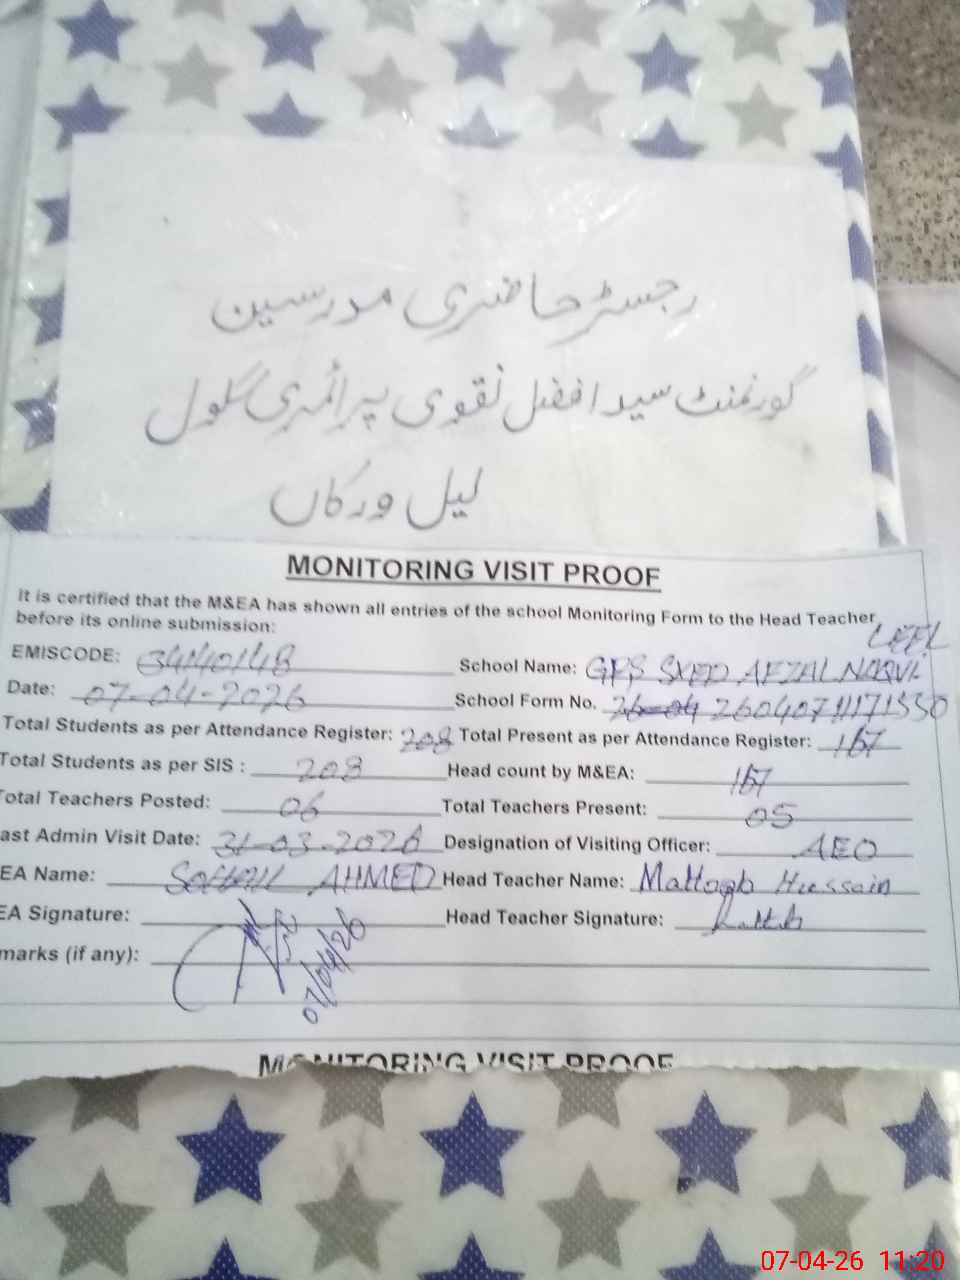 رجسٹر حاضری مدرسین
گورنمنٹ سید افضل نقوی پرائمری سکول
لیل ورکاں
MONITORING VISIT PROOF
It is certified that the M&EA has shown all entries of the school Monitoring Form to the Head Teacher
before its online submission:
EMISCODE: 34140148 School Name: GPS SYED AFZAL NAQVI LEEL
Date: 07-04-2026 School Form No. 26-04
Total Students as per Attendance Register: 208 Total Present as per Attendance Register: 167
Total Students as per SIS : 208 Head count by M&EA: 167
Total Teachers Posted: 06 Total Teachers Present: 05
ast Admin Visit Date: 31-03-2026 Designation of Visiting Officer: AEO
EA Name: AHMED Head Teacher Name: Hussain
EA Signature: Head Teacher Signature:
marks (if any):
07/04/26
MONITORING VISIT PROOF
07-04-26 11:20